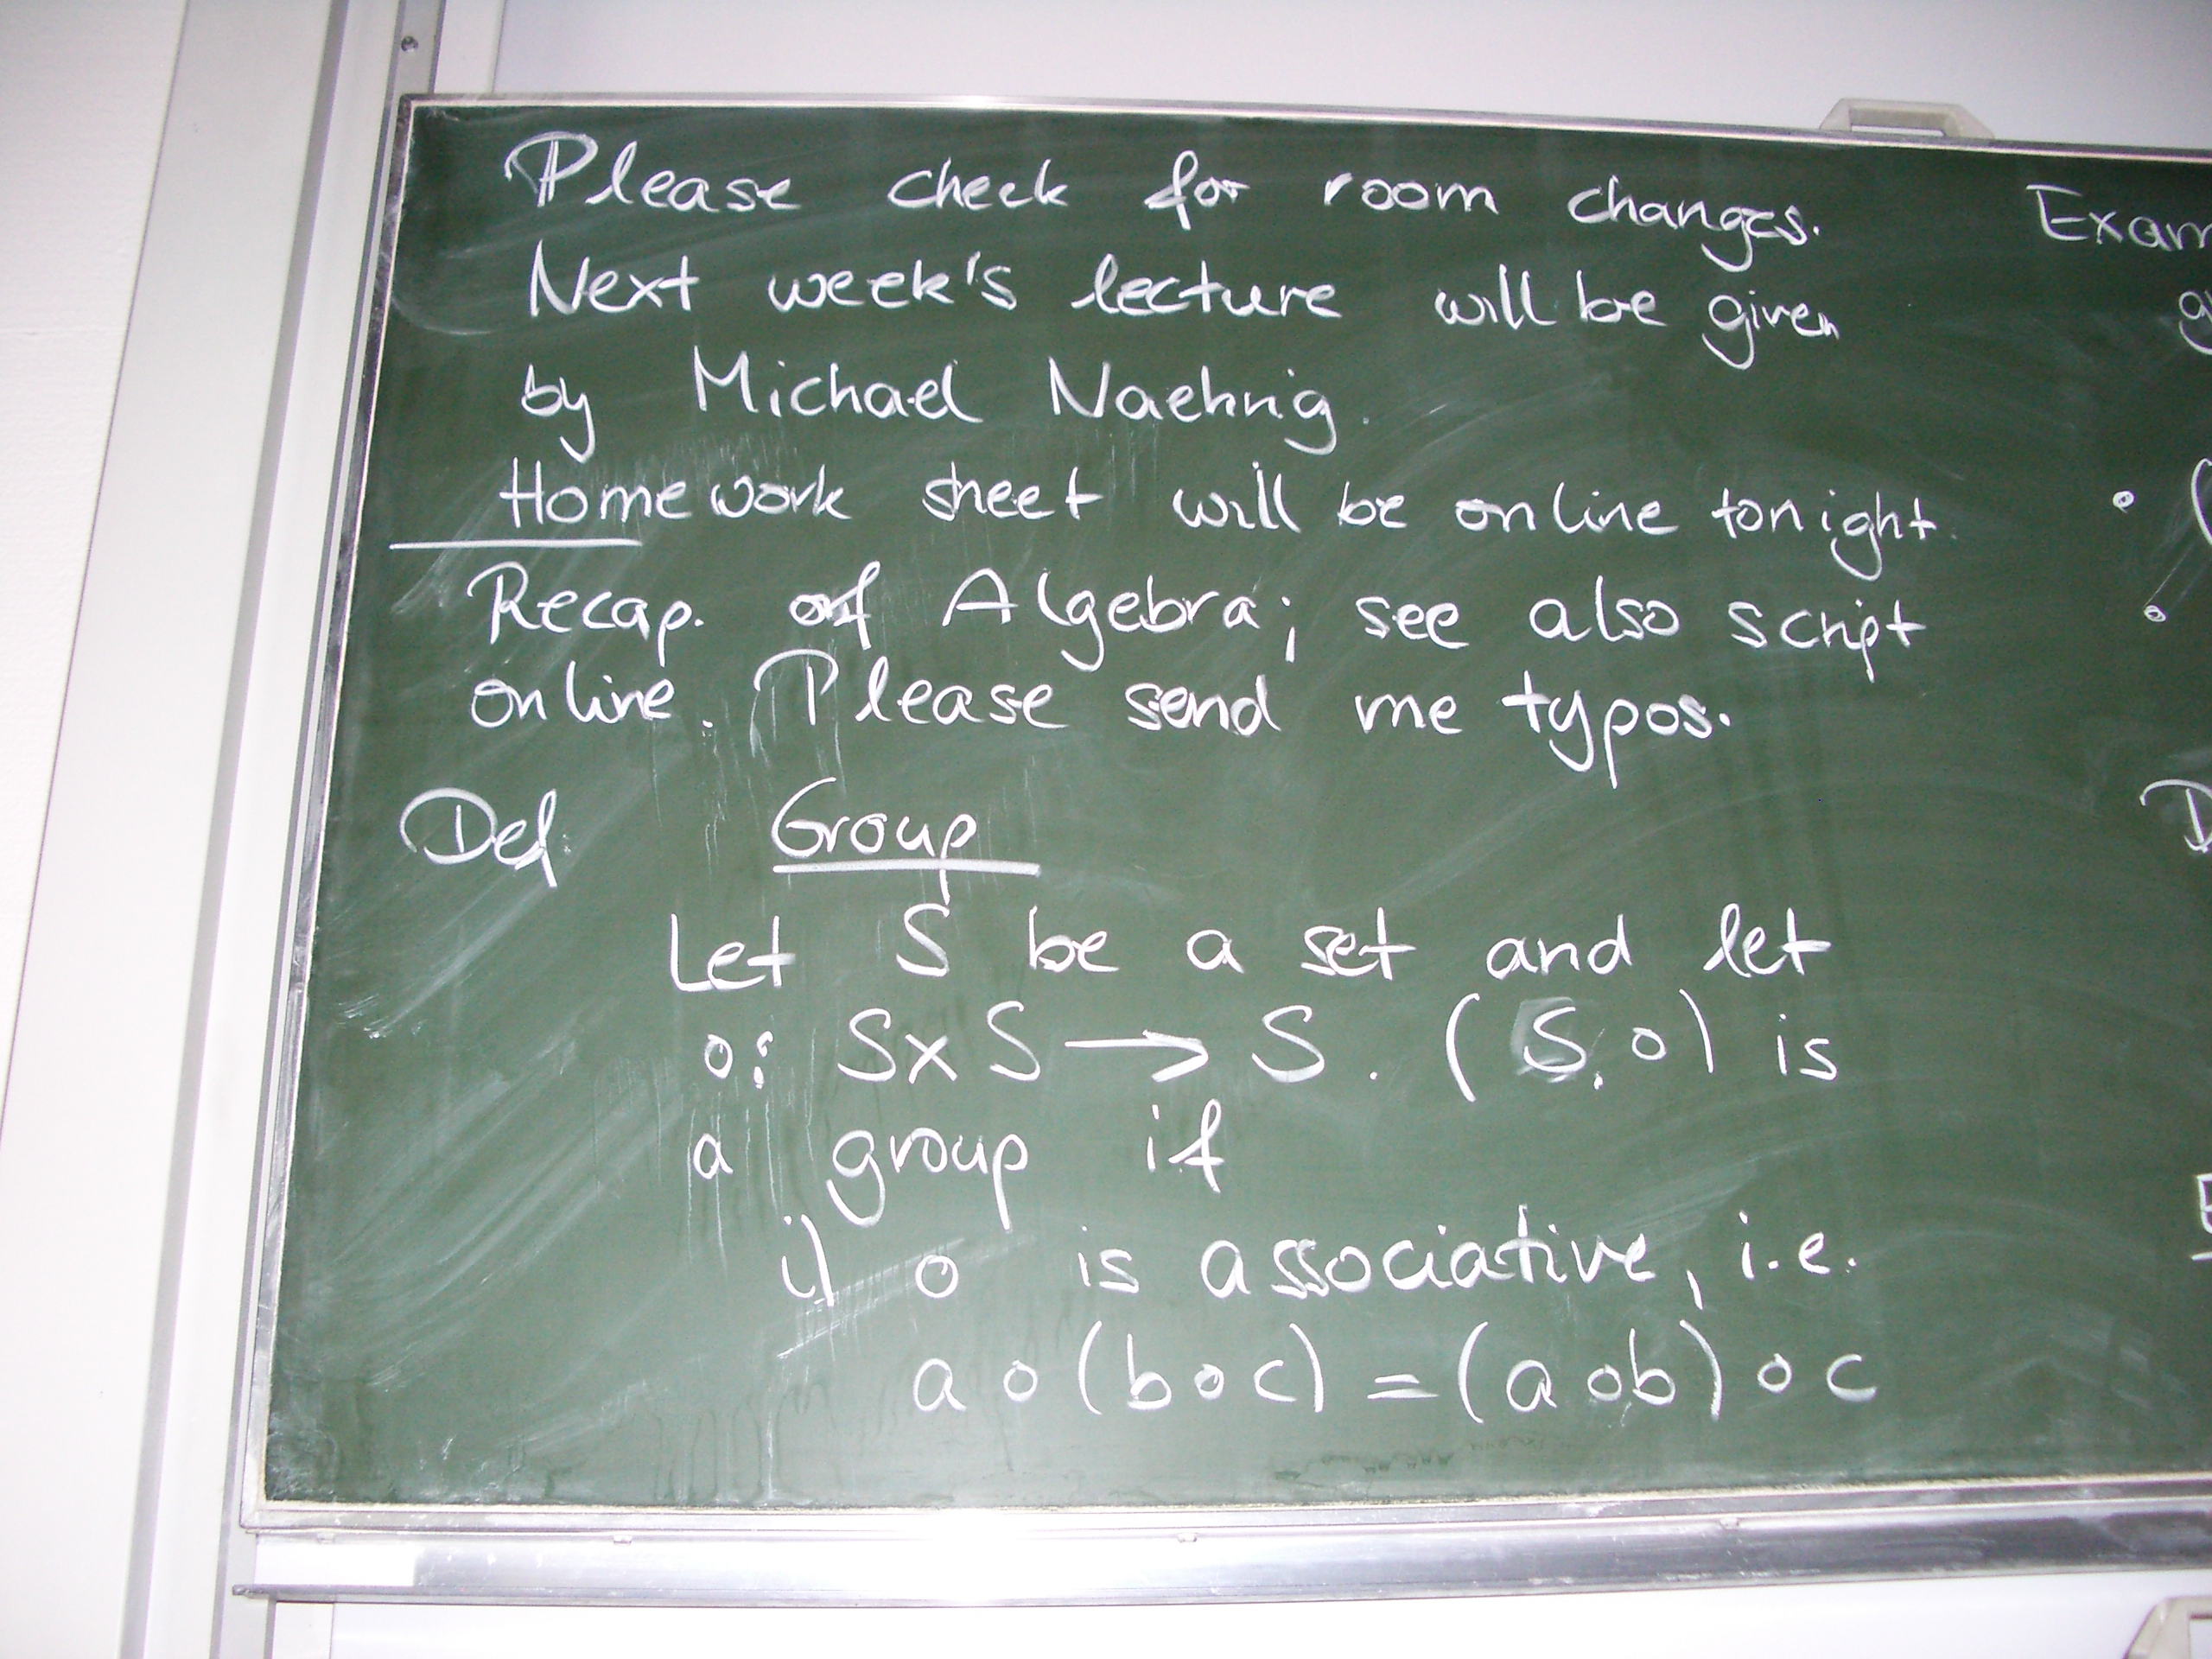 Please check for room changes.
Next week's lecture will be given
by Michael Naehrig.
Homework sheet will be online tonight.
Recap. of Algebra; see also script
online. Please send me typos.
Def. Group
Let S be a set and let
∘: S×S → S. (S,∘) is
a group if
i) ∘ is associative, i.e.
a∘(b∘c) = (a∘b)∘c
Exam